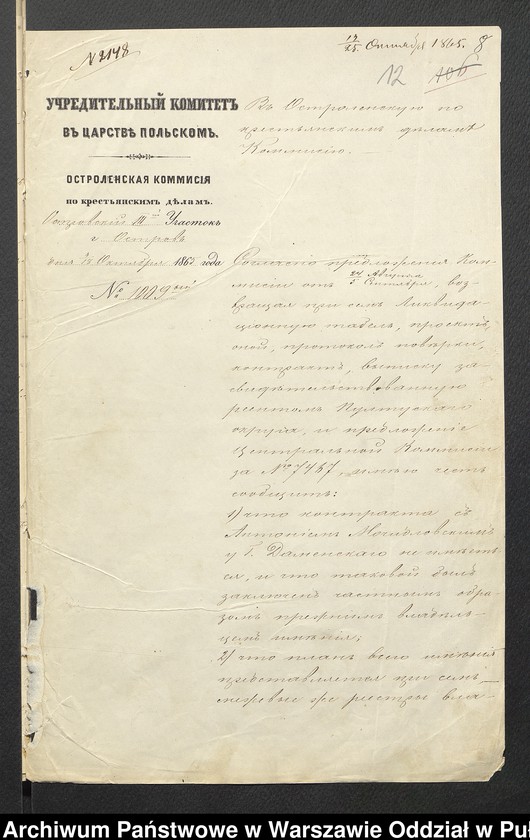 № 2148
13/25 Октября 1865. 8
12 106
УЧРЕДИТЕЛЬНЫЙ КОМИТЕТЪ
ВЪ ЦАРСТВѢ ПОЛЬСКОМЪ.
ОСТРОЛЕНСКАЯ КОММИСІЯ
по крестьянскимъ дѣламъ.
Островскій III Участокъ
г. Островъ
дня Октября 1865 года
№ 1009
Въ Остроленскую по
крестьянскимъ дѣламъ
Коммисію.
Согласно предложенія Ком-
мисіи отъ 24 Августа / 5 Сентября, воз-
вращая при семъ Ликвида-
ціонную табель, проектъ
оной, протоколъ повѣрки,
контрактъ, выписку за-
свидѣтельствованную
Пултускаго
округа, и предложеніе
Центральной Коммисіи
за № 7457, имѣю честь
сообщить:
1) что контракта съ
Антоніемъ
у Г. не имѣет-
ся, и что таковой былъ
заключенъ частнымъ обра-
зомъ прежнимъ владѣль-
цемъ имѣнія;
2) что планъ всего имѣнія
представляется при семъ,
межевые же регистры вла-
Archiwum Państwowe w Warszawie Oddział w Pu